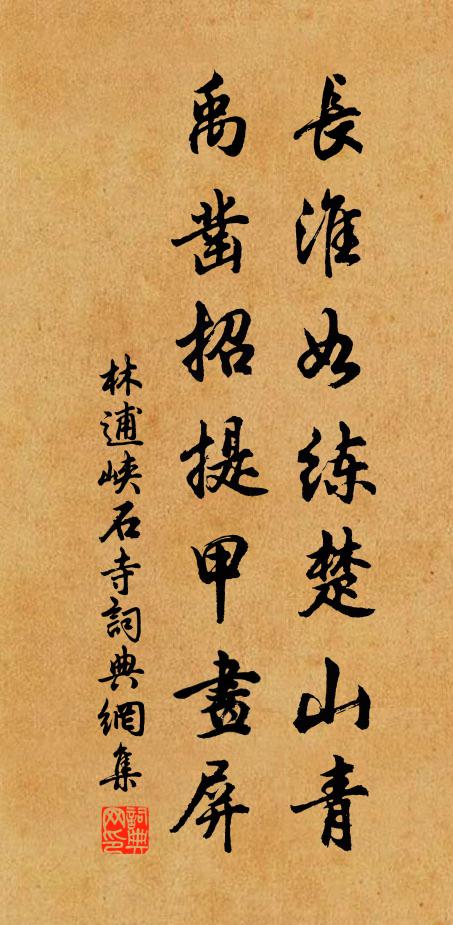 長淮如練楚山青
禹鑿招提甲畫屏
林逋峽石寺詞典網集
詞典网印